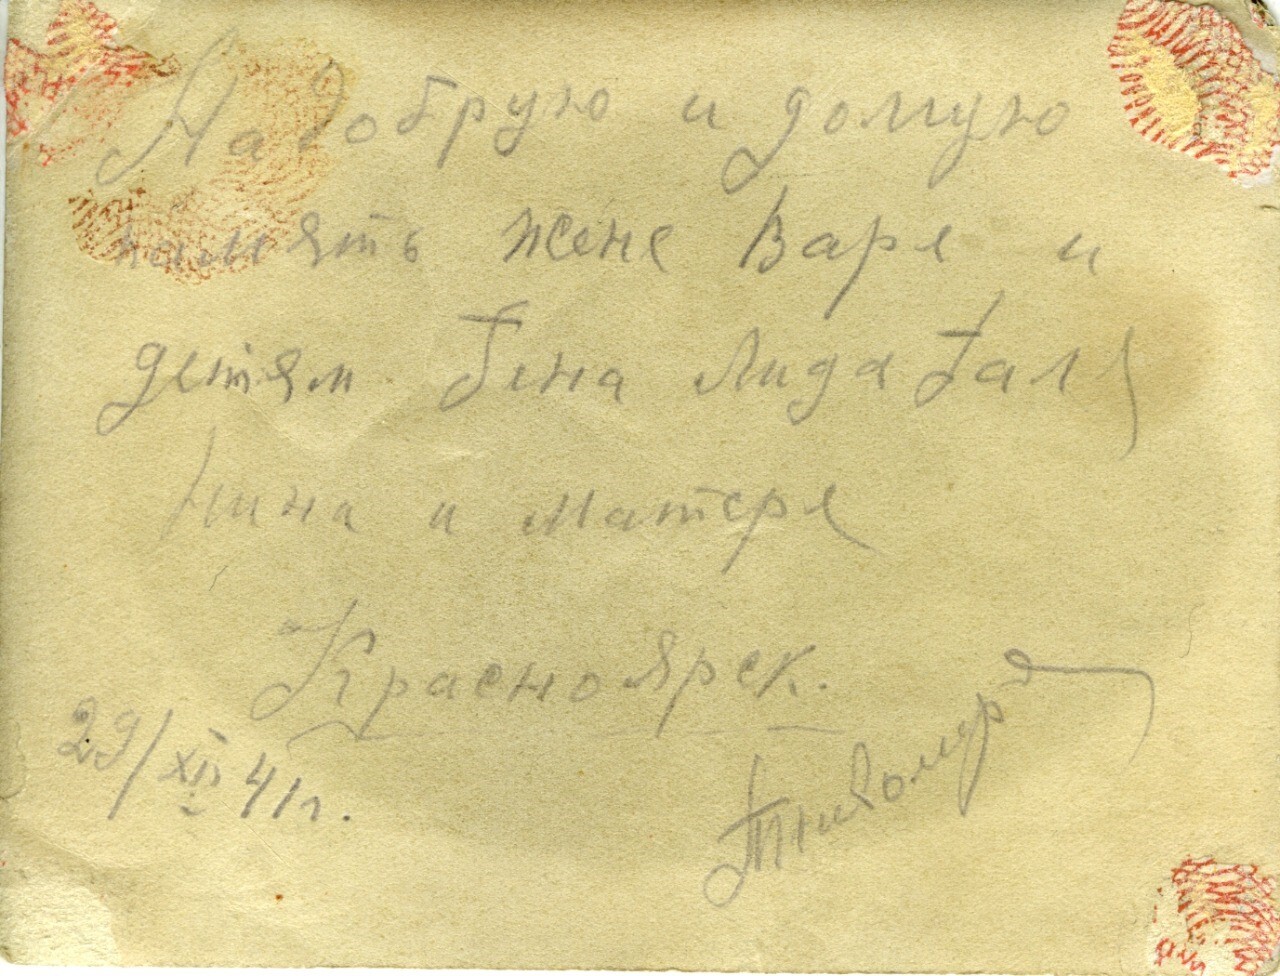 На добрую и долгую
память жене Варе и
детям Гена Лида Галя
Нина и матере
Красноярск.
29/XII 41 г.